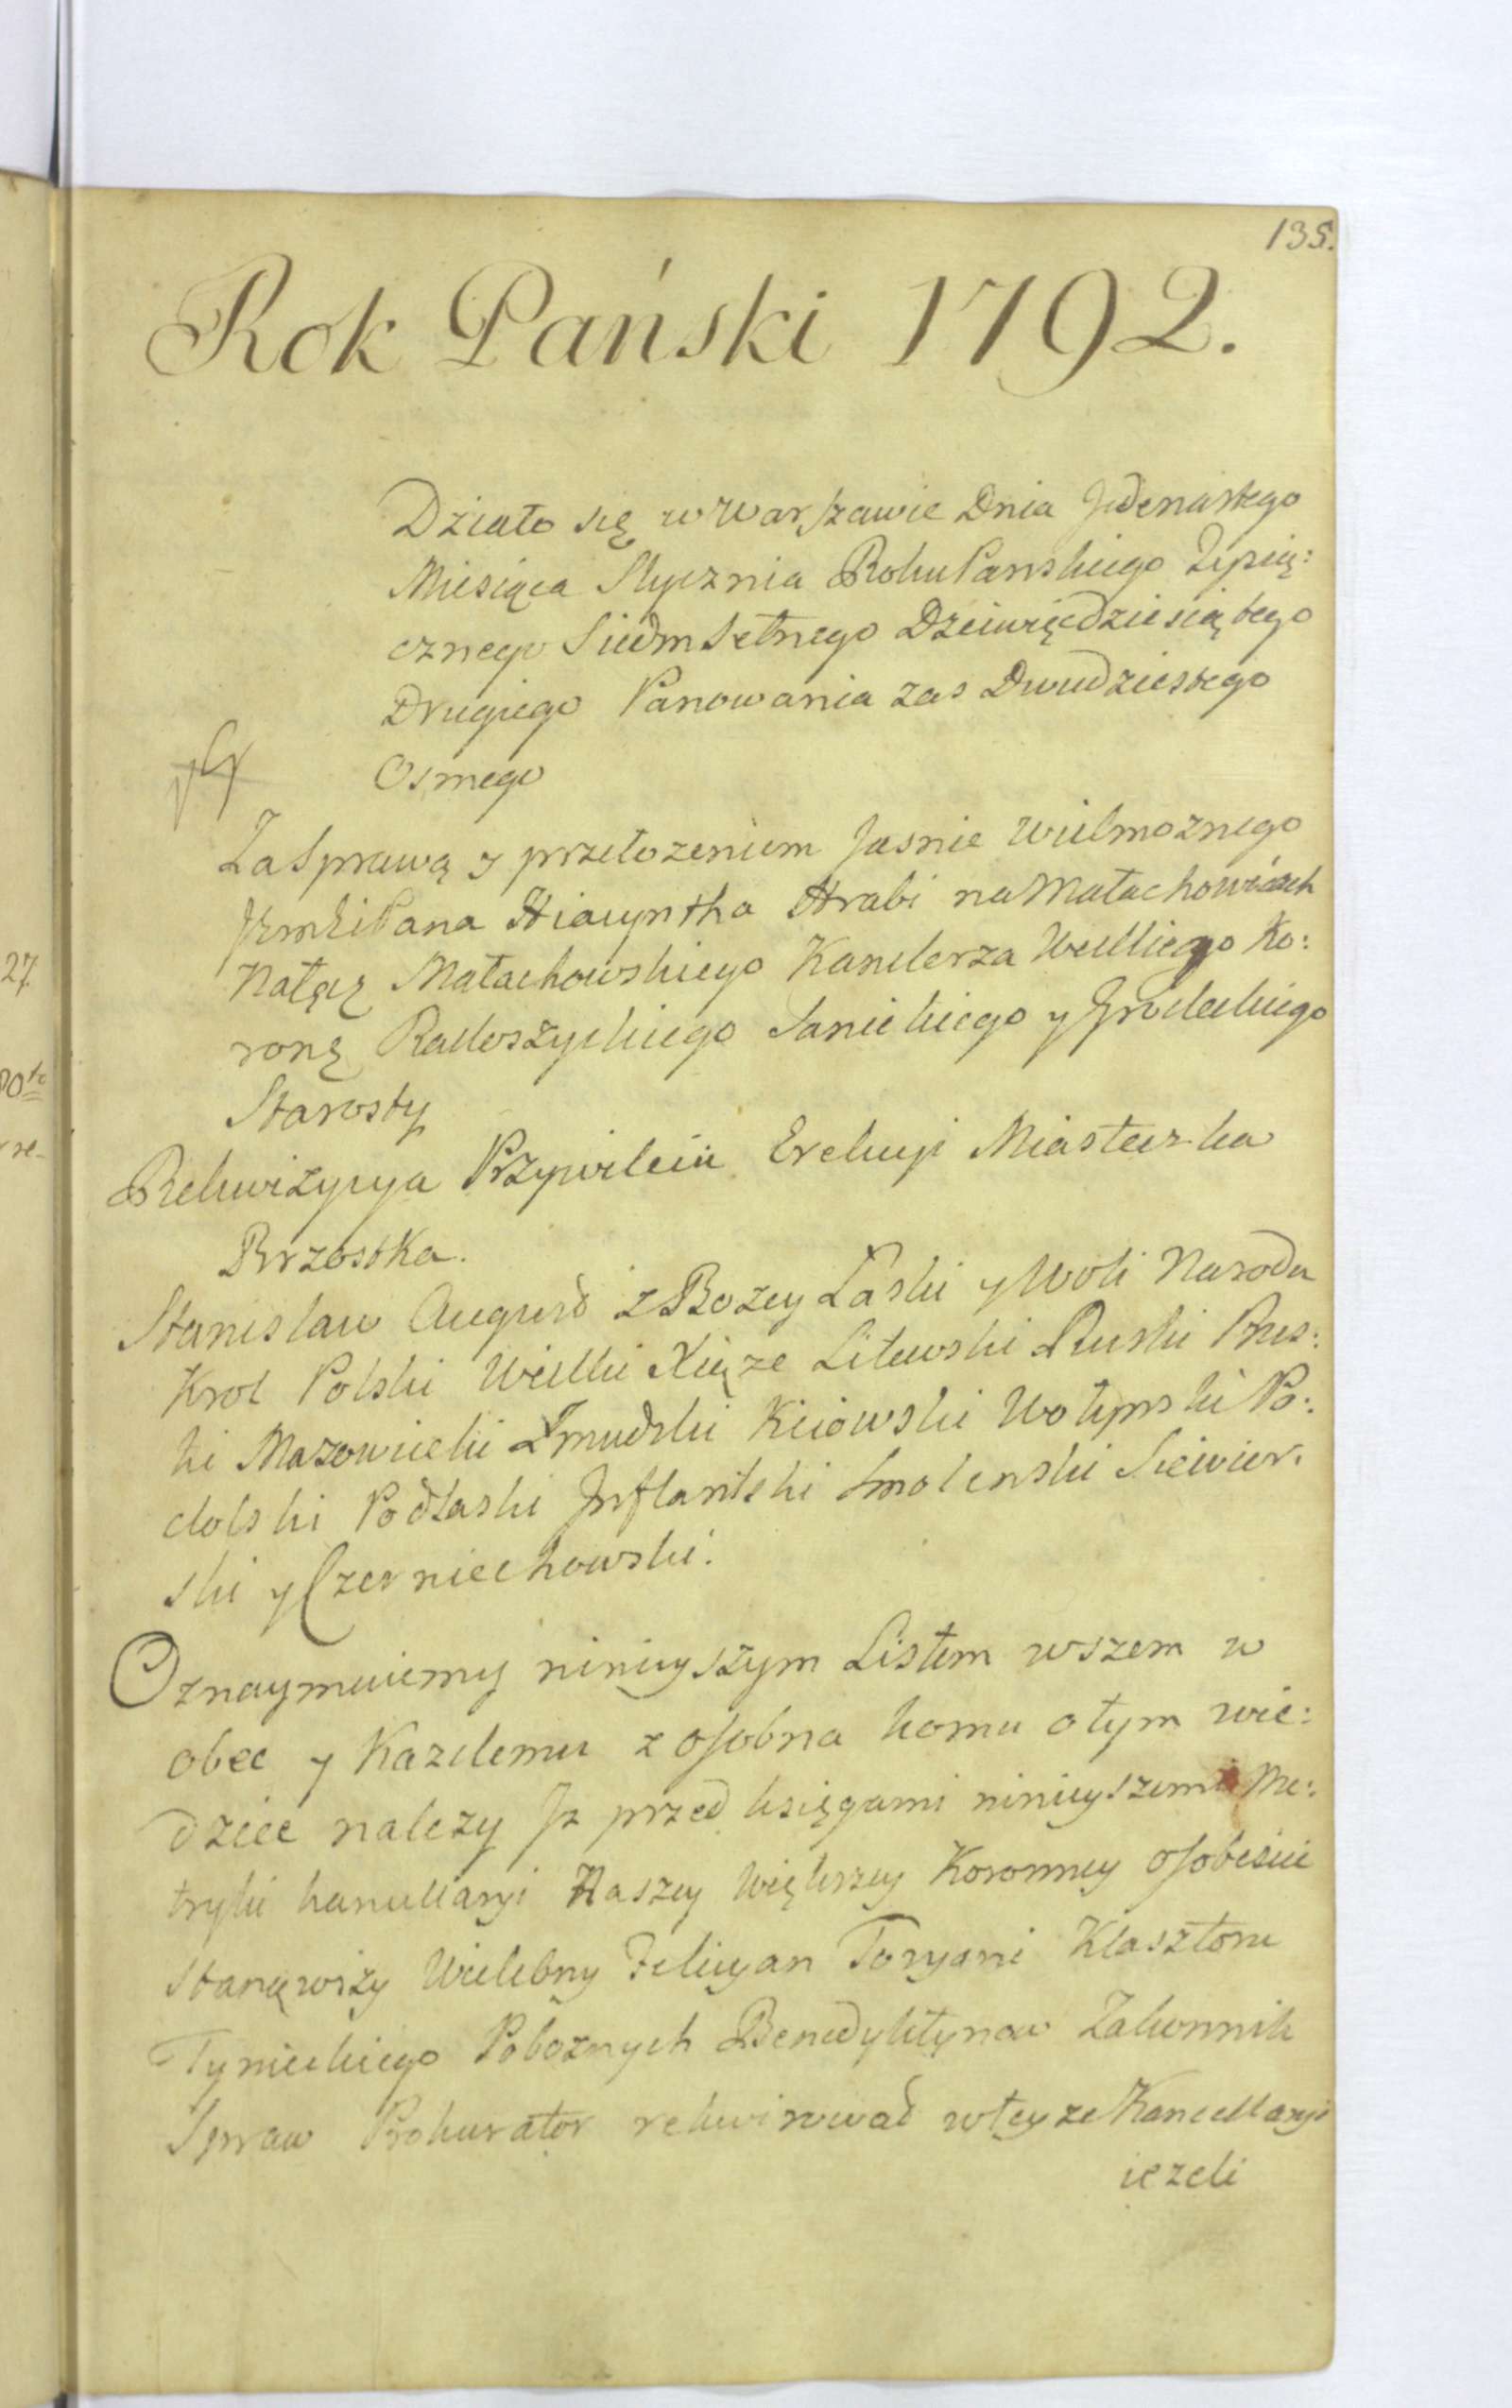 135.
Rok Pański 1792.
Działo się w Warszawie Dnia Jedenastego
Miesiąca Stycznia Roku Panskiego Tysią:
cznego Siedmsetnego Dziewięcdziesiątego
Drugiego Panowania zas Dwudziestego
Osmego
Za Sprawą y przełozeniem Jasnie Wielmoznego
Pana Hiacyntha Hrabi na Małachowicach
Nałęcz Małachowskiego Kanclerza Wielkiego Ko:
ronę Radoszyckiego Sanickiego y Grodeckiego
Starosty
Rekwizycya Przywileiu Erekcyi Miasteczka
Brzostka.
Stanislaw August z Bozey Łaski y Woli Narodu
Krol Polski Wielki Xiąze Litewski Ruski Prus:
ki Mazowiecki Zmudzki Kiiowski Wołynski Po:
dolski Podlaski Inflantski Smolenski Siewier.
ski y Czerniechowski.
Oznaymuiemy ninieyszym Listem wszem w
obec y Kazdemu z osobna komu o tym wie:
dziec nalezy Jz przed księgami ninieyszemi Me:
tryki kancellaryi Naszey Większey Koronney osobiscie
Stanąwszy Wielebny Felicyan Toryani Klasztoru
Tynieckiego Poboznych Benedyktynow Zakonnik
Spraw Prokurator rekwirował w teyze Kancellaryi
iezeli
27.
re-